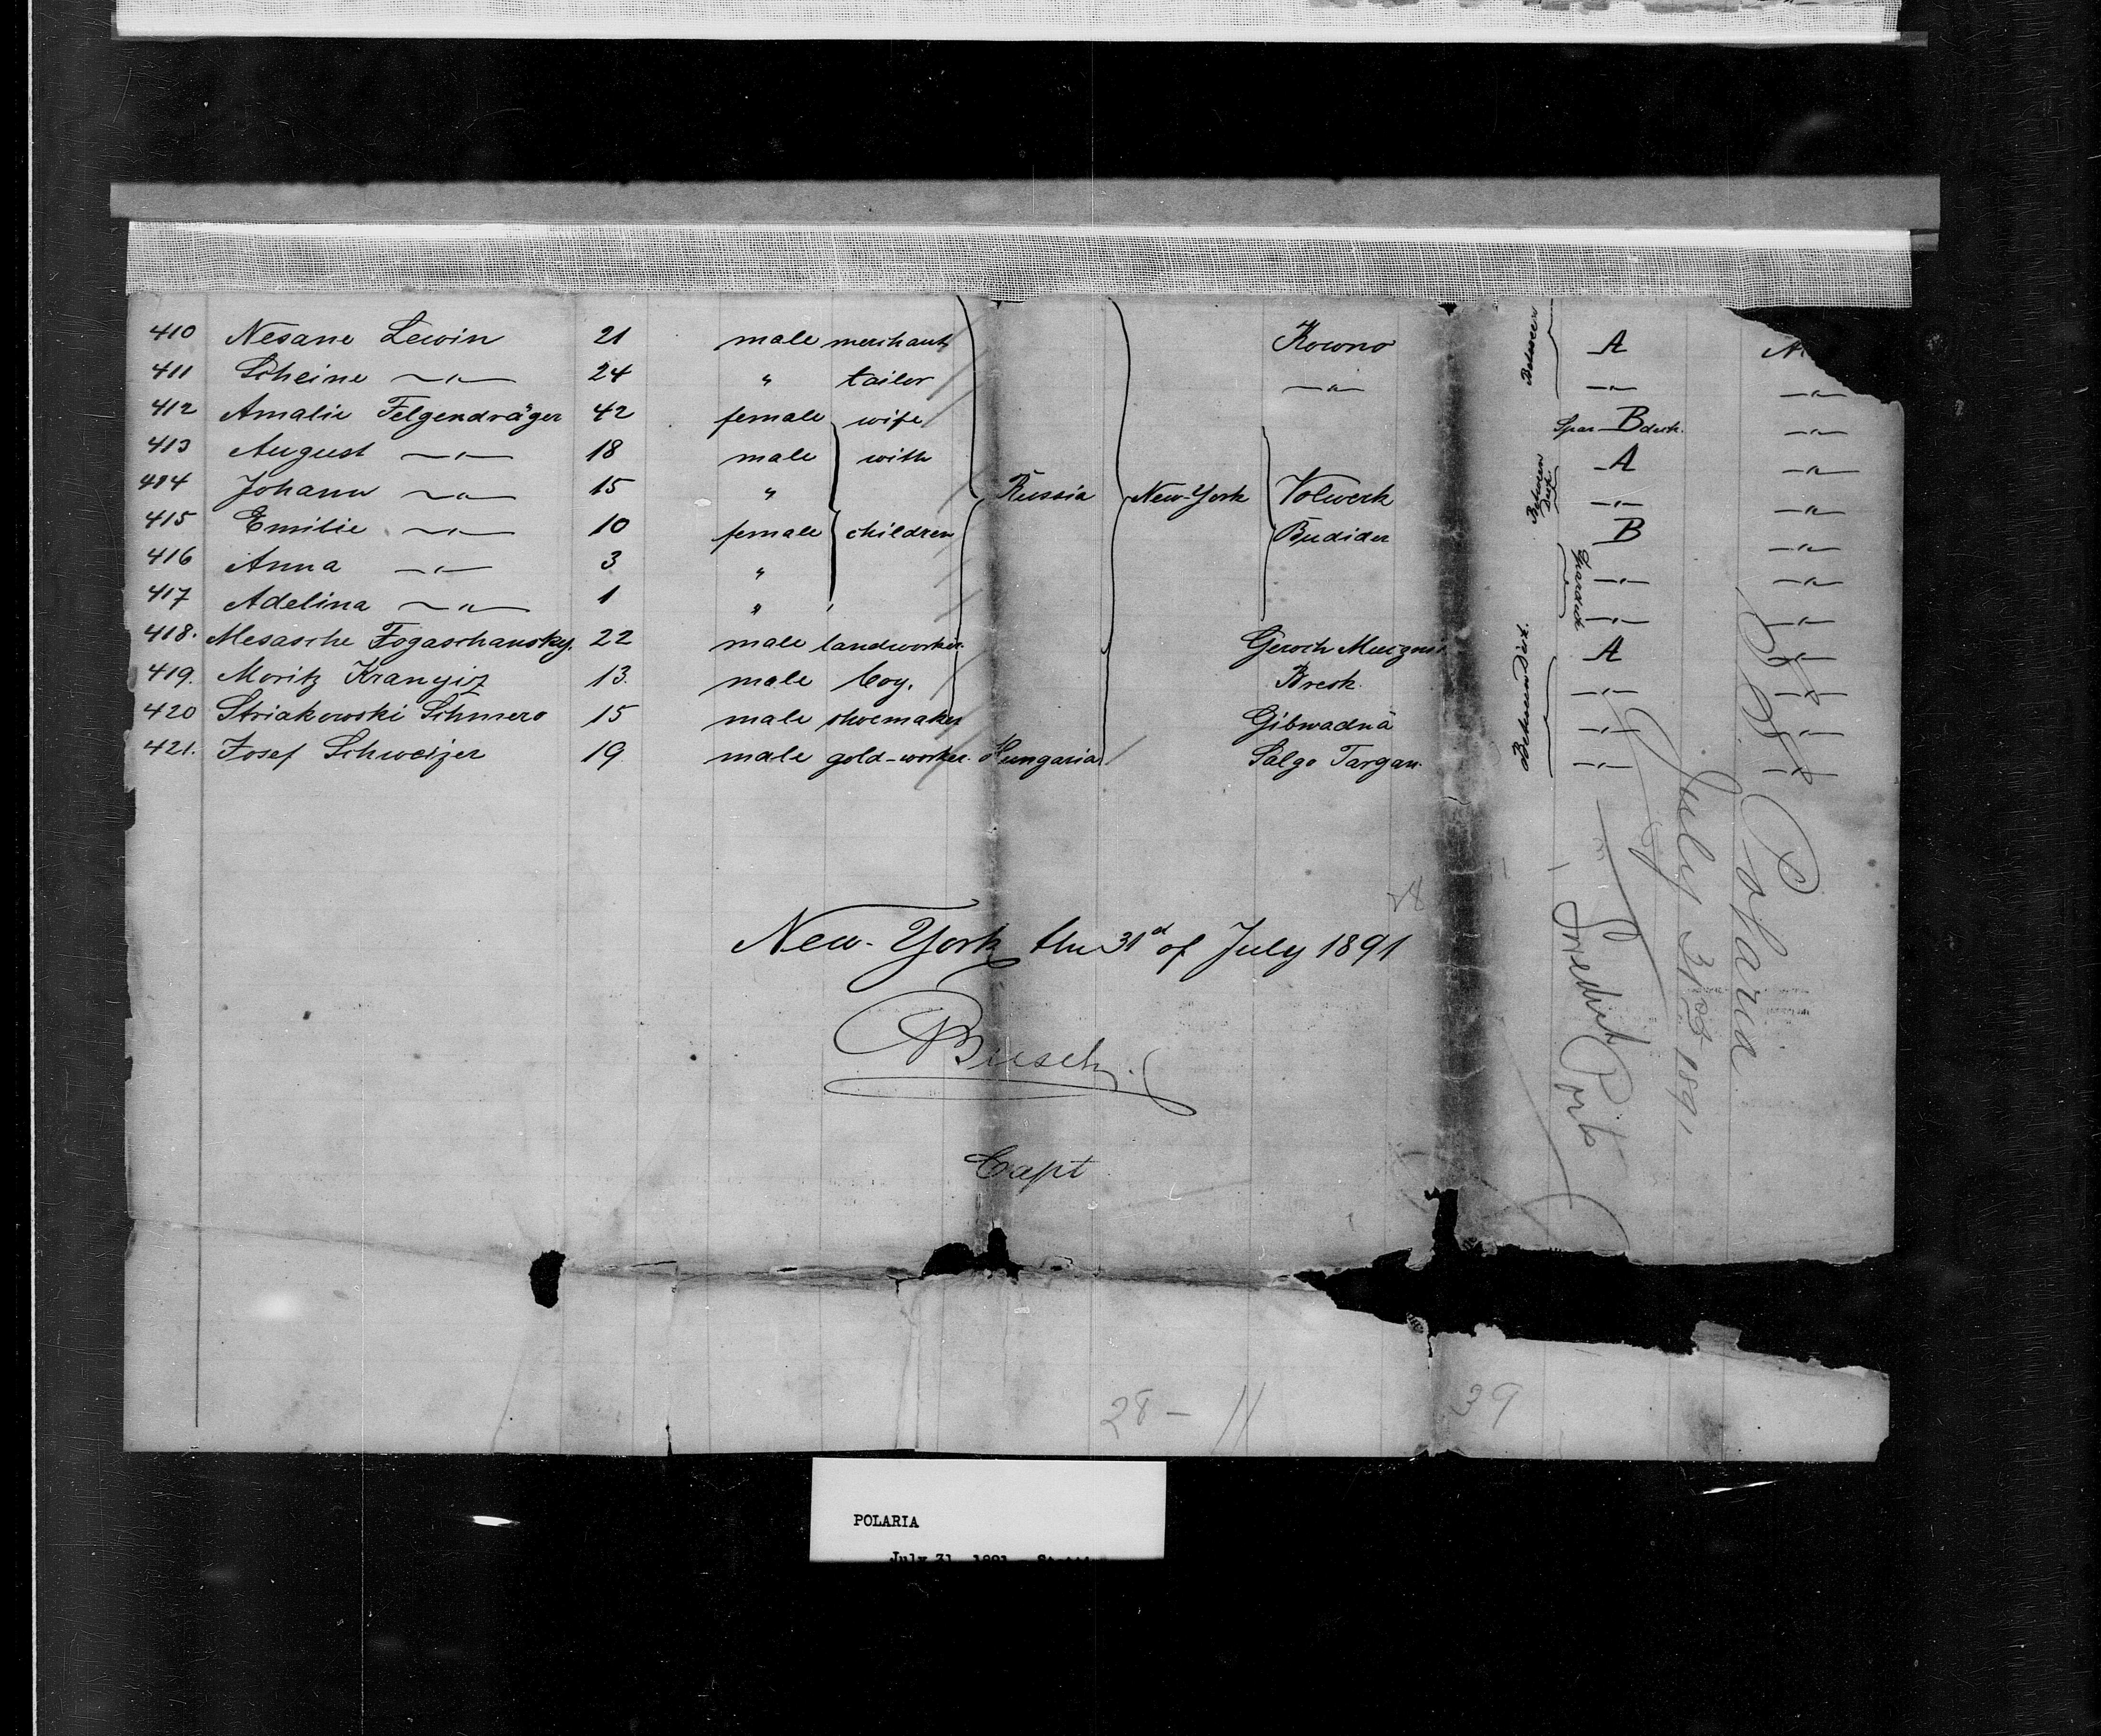 410 Nesane Lewin 21 male merchant Kowno A
411 Scheine —"— 24 " tailor —"— —"— —"—
412 Amalie Felgendräger 42 female wife B deck. —"—
413 August —"— 18 male with A —"—
414 Johann —"— 15 " Russia New-York Volwerk —"— —"—
415 Emilie —"— 10 female children Budider B —"—
416 Anna —"— 3 " —"— —"—
417 Adelina —"— 1 " —"— —"—
418. Mesasche Fogaschansky. 22 male landworker. A —"—
419. Moritz Kranyiz 13. male boy. Bresk. —"— —"—
420 Striakowski Schmero 15 male shoemaker Gibwadna —"— —"—
421. Josef Schweizer 19 male gold-worker. Hungaria Salgo Targan. —"— —"—
Between Deck
Between Deck.
28
New-York the 31d of July 1891
Busch.
Capt
SS. Polaria
July 31st 1891,
28 – 11
39
POLARIA
July 31, 1891